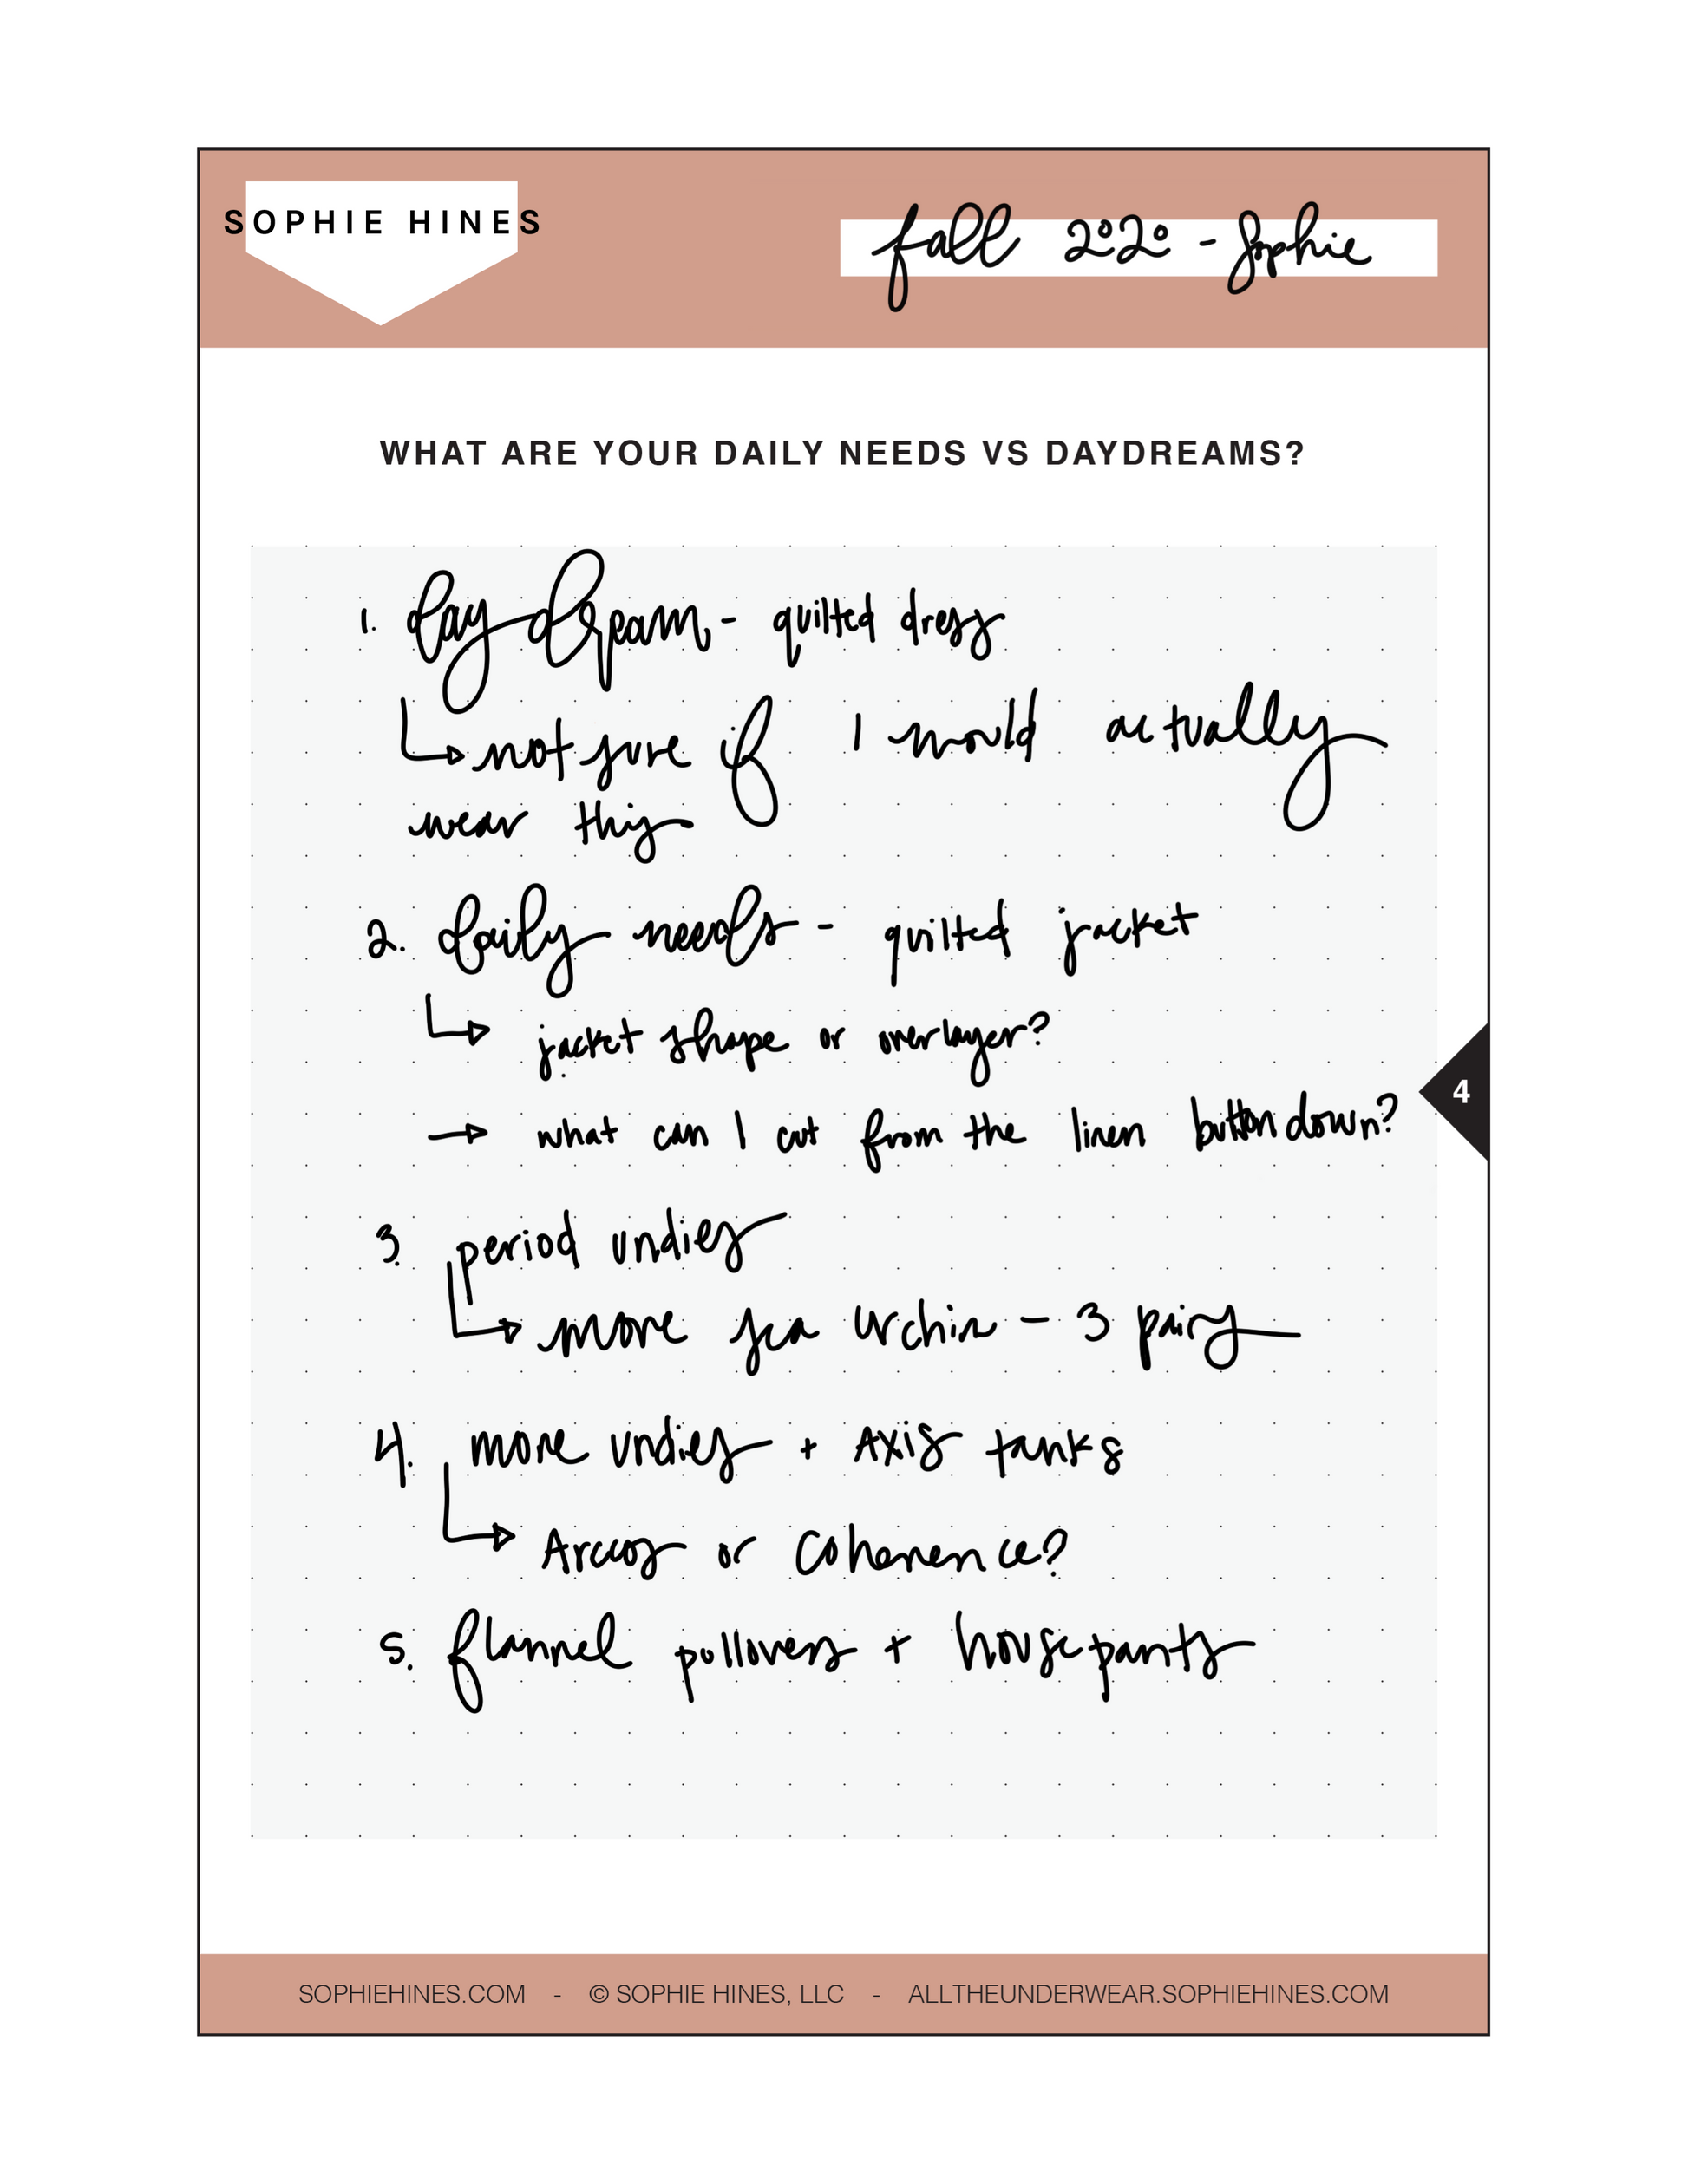 SOPHIE HINES
fall 2020 - Sophie
WHAT ARE YOUR DAILY NEEDS VS DAYDREAMS?
1. day dream - quilted dress
not sure if I would actually
wear this
2. daily needs - quilted jacket
jacket shape or overlayer?
what can I cut from the linen button down?
4
3. period undies
more sea urchin - 3 pairs
4. more undies + Axis tanks
Arcos or Coherence?
5. flannel pullovers + house pants
SOPHIEHINES.COM - © SOPHIE HINES, LLC - ALLTHEUNDERWEAR.SOPHIEHINES.COM